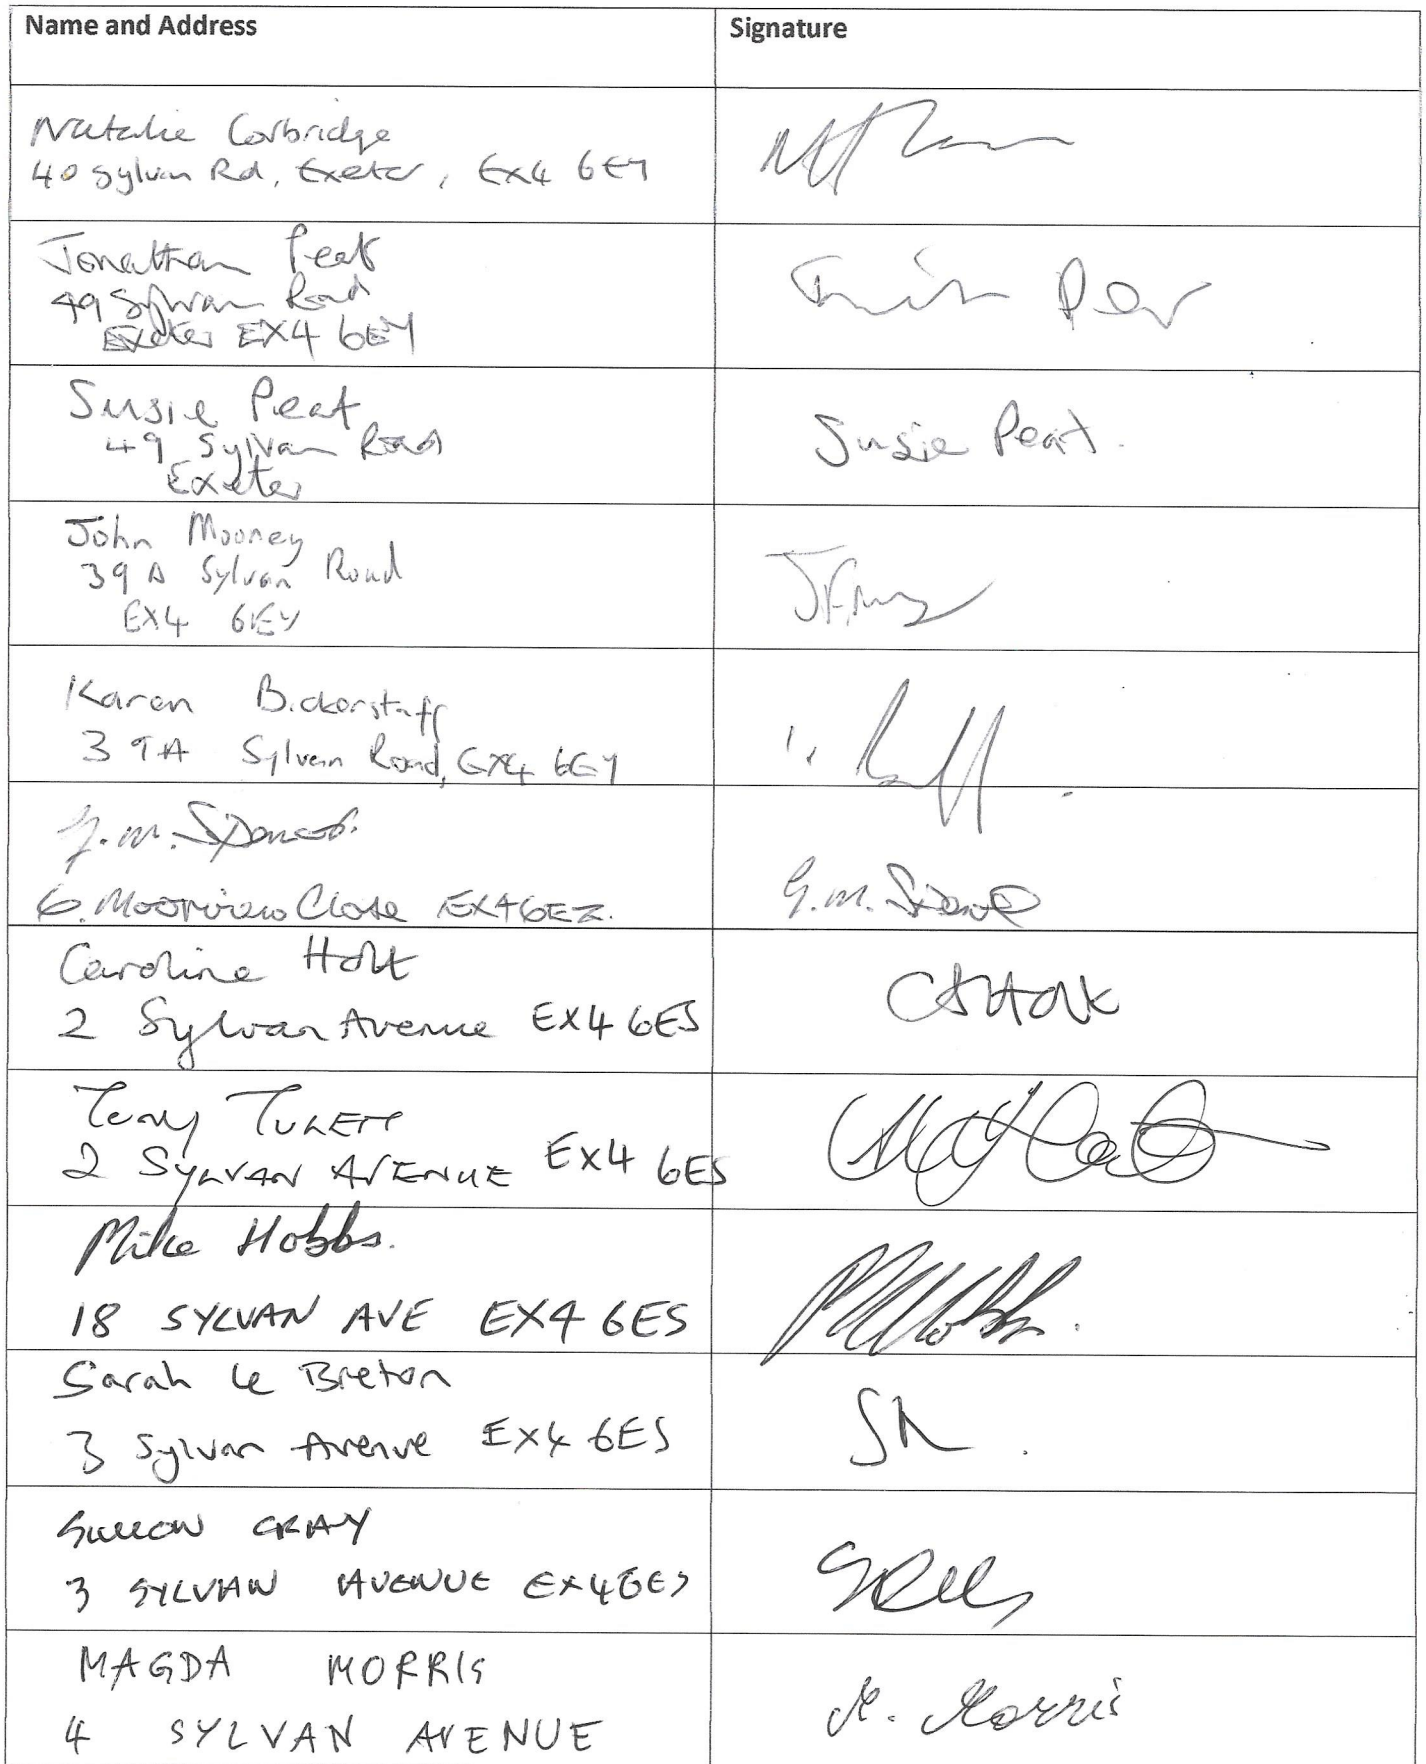 Name and Address
Signature
Natalie Corbridge
40 Sylvan Rd, Exeter, EX4 6EY
Jonathan Peat
49 Sylvan Road
Exeter EX4 6EY
Susie Peat
49 Sylvan Road
Exeter
Susie Peat.
John Mooney
39A Sylvan Road
EX4 6EY
Karen Bickerstaff
39A Sylvan Road, EX4 6EY
G.M.
6. Moorview Close EX4 6EZ.
G.M.
Caroline Holt
2 Sylvan Avenue EX4 6ES
CAHolt
Tony
2 SYLVAN AVENUE EX4 6ES
Mike Hobbs.
18 SYLVAN AVE EX4 6ES
Sarah Le Breton
3 Sylvan Avenue EX4 6ES
SIMON GRAY
3 SYLVAN AVENUE EX4 6ES
MAGDA MORRIS
4 SYLVAN AVENUE
M. Morris